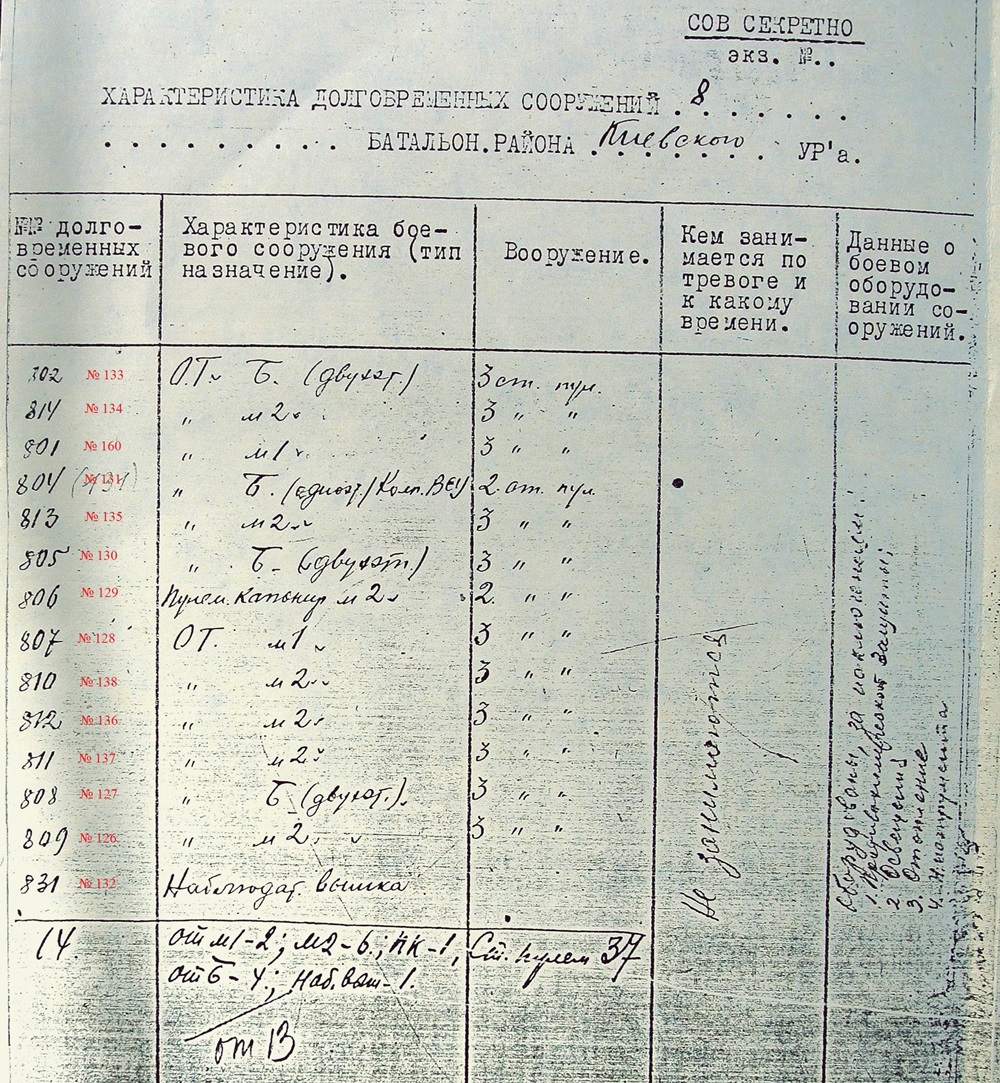 СОВ СЕКРЕТНО
экз. №..
ХАРАКТЕРИСТИКА ДОЛГОВРЕМЕННЫХ СООРУЖЕНИЙ 8
БАТАЛЬОН.РАЙОНА Киевского УР'а.
№№ долго-
временных
сооружений
Характеристика бое-
вого сооружения (тип
назначение).
Вооружение.
Кем зани-
мается по
тревоге и
к какому
времени.
Данные о
боевом
оборудо-
вании со-
оружений.
302 № 133 О.Т. Б. (двухэт.) 3 ст. пул.
814 № 134 " М2 3 " "
801 № 160 " М1 3 " "
804 (131) № 131 " Б. (одноэт.) Комп. ВСУ 2. ст. пул.
813 № 135 " М2 3 " "
805 № 130 " Б. (двухэт.) 3 " "
806 № 129 Пулем. капонир М2 2. " "
807 № 128 ОТ. М1 3 " "
810 № 138 " М2 3 " "
812 № 136 " М2 3 " "
811 № 137 " М2 3 " "
808 № 127 " Б (двухэт.) 3 " "
809 № 126 " М2 3 " "
831 № 132 Наблюдат. вышка
Не занимаются
Оборудованы, за исключением:
1. Противохимической защиты;
2 Освещений
3. Отопление
4. Инструмента
14. от М1-2; М2-6.; ПК-1, Ст. пулем 37
от Б-4.; Наб.выш-1.
от 13